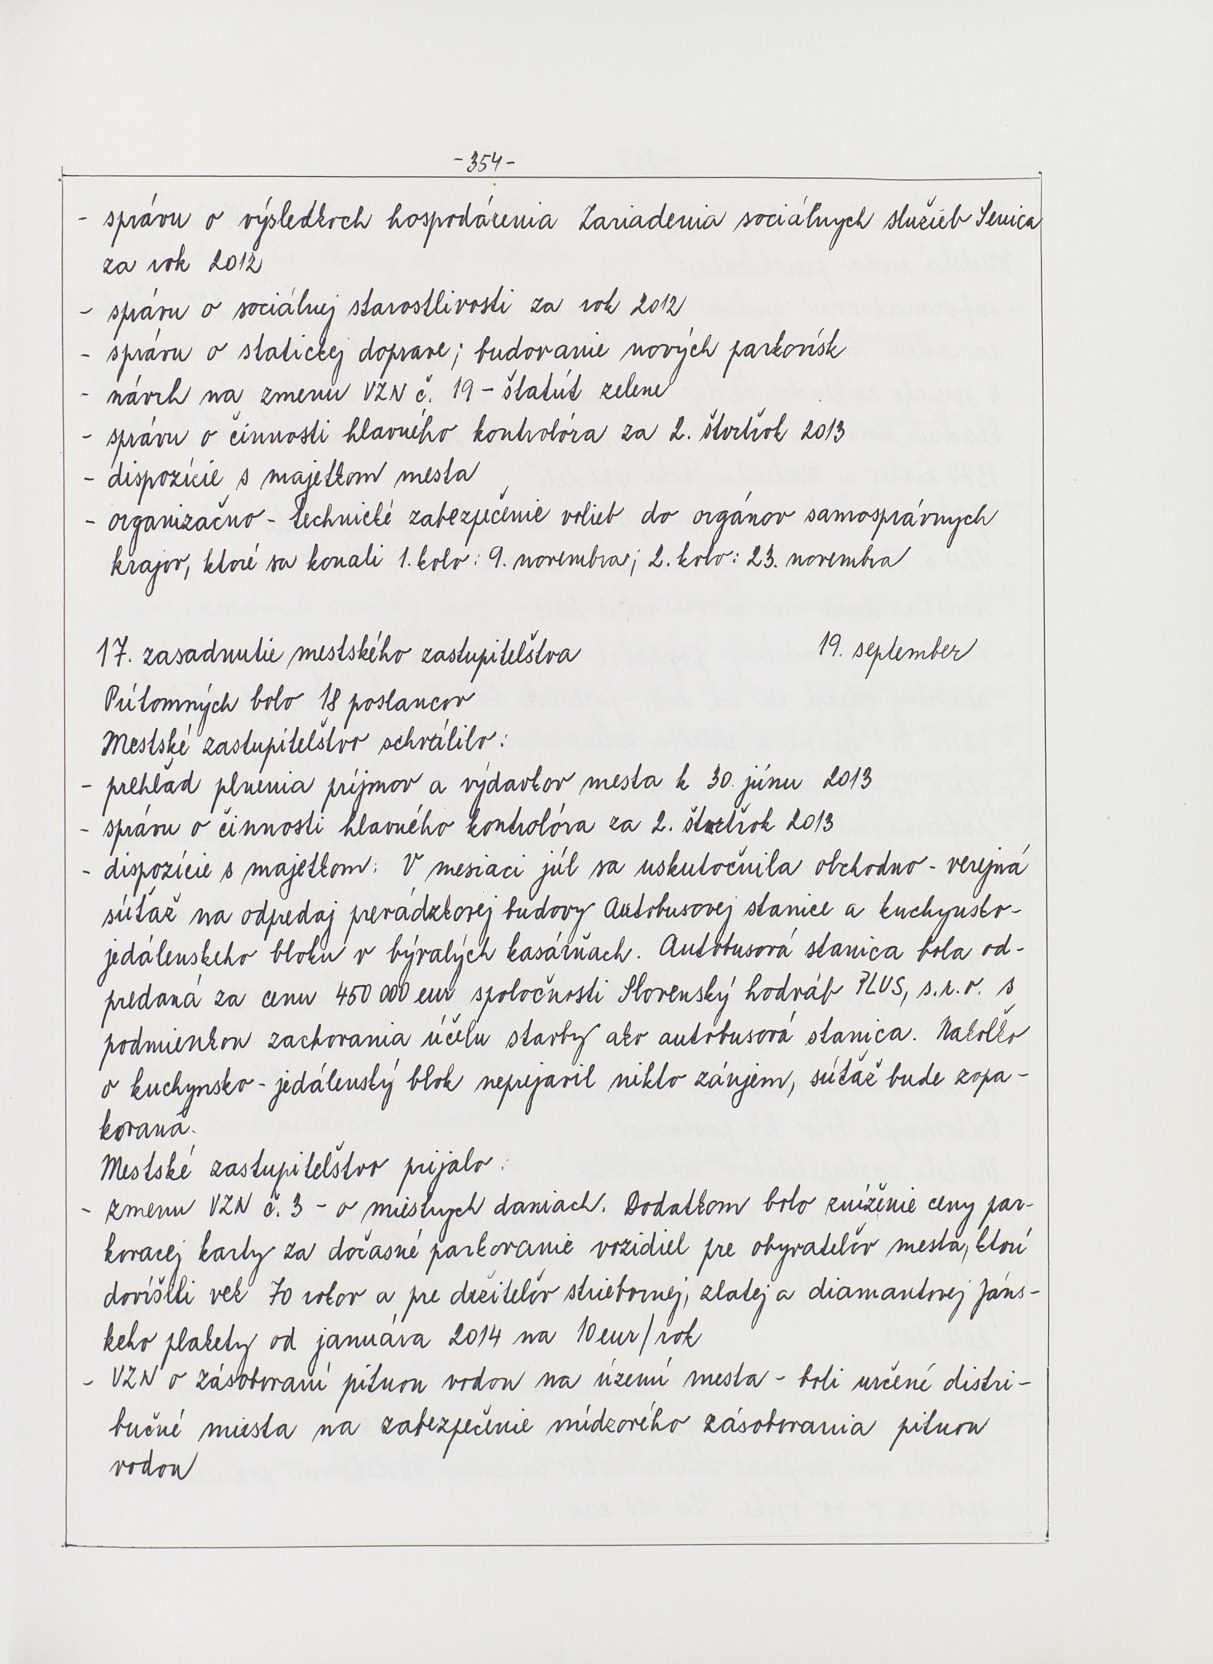 -354-
- správu o výsledkoch hospodárenia Zariadenia sociálnych služieb Senica
za rok 2012
- správu o sociálnej starostlivosti za rok 2012
- správu o statickej doprave; budovanie nových parkovísk
- návrh na zmenu VZN č. 19 - štatút zelene
- správu o činnosti hlavného kontrolóra za 2. štvrťrok 2013
- dispozície s majetkom mesta
- organizačno - technické zabezpečenie volieb do orgánov samosprávnych
krajov, ktoré sa konali 1. kolo: 9. novembra; 2. kolo: 23. novembra
17. zasadnutie mestského zastupiteľstva 19. september
Prítomných bolo 18 poslancov
Mestské zastupiteľstvo schválilo:
- prehľad plnenia príjmov a výdavkov mesta k 30. júnu 2013
- správu o činnosti hlavného kontrolóra za 2. štvrťrok 2013
- dispozície s majetkom: V mesiaci júl sa uskutočnila obchodno - verejná
súťaž na odpredaj prevádzkovej budovy Autobusovej stanice a kuchynsko-
jedálenskeho bloku v bývalých kasárňach. Autobusová stanica bola od-
predaná za cenu 450 000 eur spoločnosti Slovenský hodváb PLUS, s.r.o. s
podmienkou zachovania účelu stavby ako autobusová stanica. Nakoľko
o kuchynsko - jedálenský blok neprejavil nikto záujem, súťaž bude zopa-
kovaná.
Mestské zastupiteľstvo prijalo:
- zmenu VZN č. 3 - o miestnych daniach. Dodatkom bolo zníženie ceny par-
kovacej karty za dočasné parkovanie vozidiel pre obyvateľov mesta, ktorí
dovŕšili vek 70 rokov a pre držiteľov striebornej, zlatej a diamantovej Jáns-
keho plakety od januára 2014 na 10 eur/rok
- VZN o zásobovaní pitnou vodou na území mesta - boli určené distri-
bučné miesta na zabezpečenie núdzového zásobovania pitnou
vodou